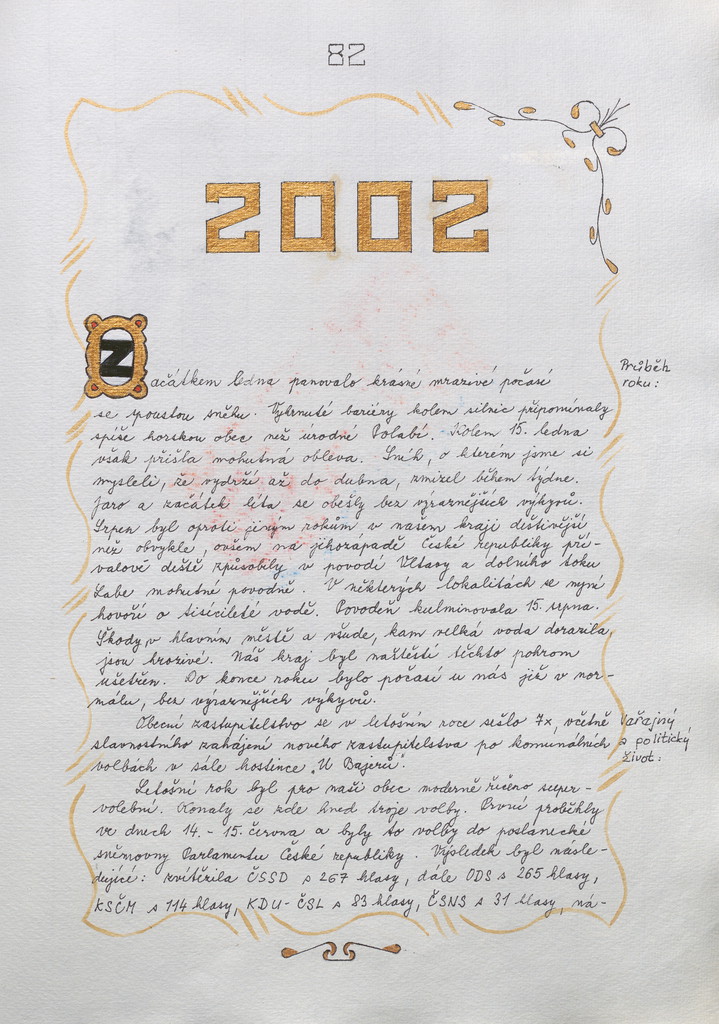 82
2002
Začátkem ledna panovalo krásné mrazivé počasí
Průběh
roku:
se spoustou sněhu. Vyhrnuté bariéry kolem silnic připomínaly
spíše horskou obec než úrodné Polabí. Kolem 15. ledna
však přišla mohutná obleva. Sníh, o kterém jsme si
mysleli, že vydrží až do dubna, zmizel během týdne.
Jaro a začátek léta se obešly bez výraznějších výkyvů.
Srpen byl oproti jiným rokům v našem kraji deštivější
než obvykle, ovšem na jihozápadě České republiky pří-
valové deště způsobily v povodí Vltavy a dolního toku
Labe mohutné povodně. V některých lokalitách se nyní
hovoří o tisícileté vodě. Povodeň kulminovala 15. srpna.
Škody v hlavním městě a všude, kam velká voda dorazila,
jsou hrozivé. Náš kraj byl naštěstí těchto pohrom
ušetřen. Do konce roku bylo počasí u nás již v nor-
málu, bez výraznějších výkyvů.
Obecní zastupitelstvo se v letošním roce sešlo 7x, včetně
Veřejný
slavnostního zahájení nového zastupitelstva po komunálních
a politický
volbách v sále hostince "U Bajerů".
život:
Letošní rok byl pro naši obec moderně řečeno super-
volební. Konaly se zde hned troje volby. První proběhly
ve dnech 14. - 15. června a byly to volby do poslanecké
sněmovny Parlamentu České republiky. Výsledek byl násle-
dující: zvítězila ČSSD s 267 hlasy, dále ODS s 265 hlasy,
KSČM s 114 hlasy, KDU-ČSL s 83 hlasy, ČSNS s 31 hlasy, ná-